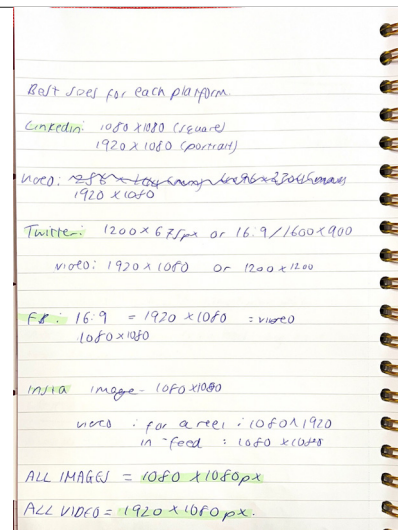 Best sizes for each platform.
Linkedin: 1080 x 1080 (square)
1920 x 1080 (portrait)
Video:
1920 x 1080
Twitter: 1200 x 675px or 16:9/1600x900
video: 1920 x 1080 or 1200 x 1200
FB: 16:9 = 1920 x 1080 = video
1080 x 1080
Insta image - 1080 x 1080
video : for a reel : 1080 x 1920
in-feed : 1080 x 1080
ALL IMAGES = 1080 x 1080px
ALL VIDEO = 1920 x 1080px.